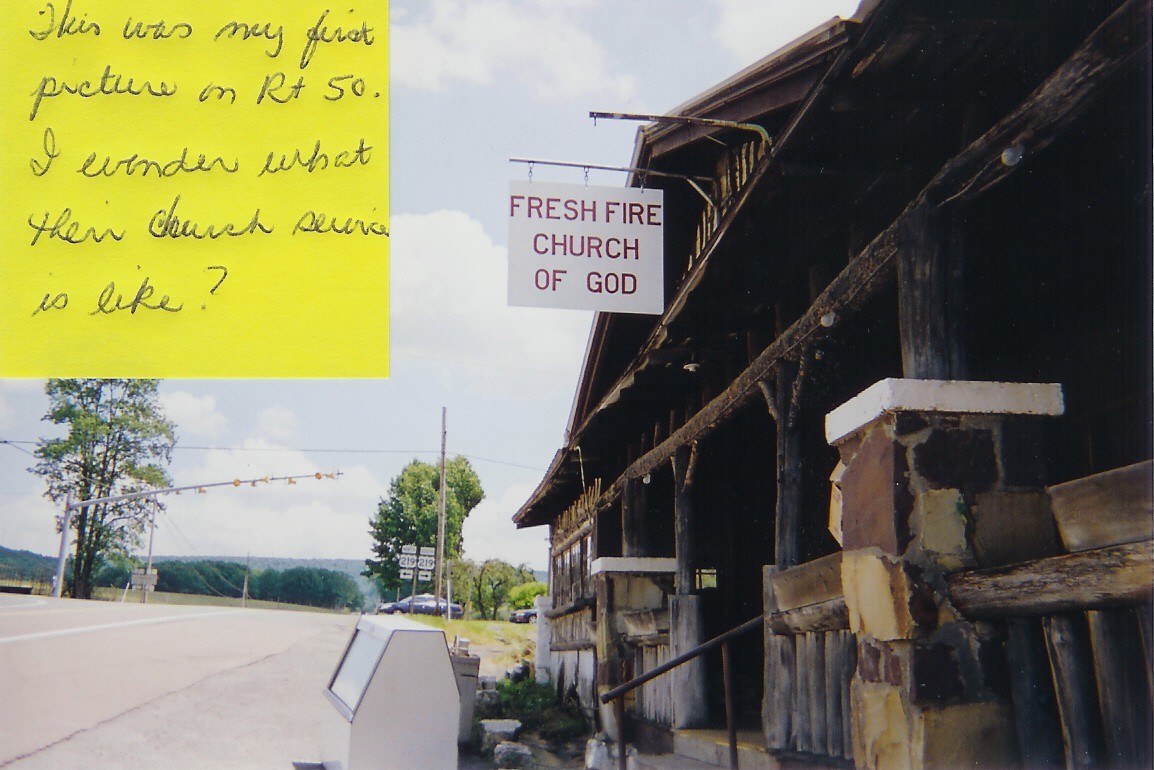 This was my first
picture on Rt 50.
I wonder what
their church service
is like?
FRESH FIRE
CHURCH
OF GOD
219 219